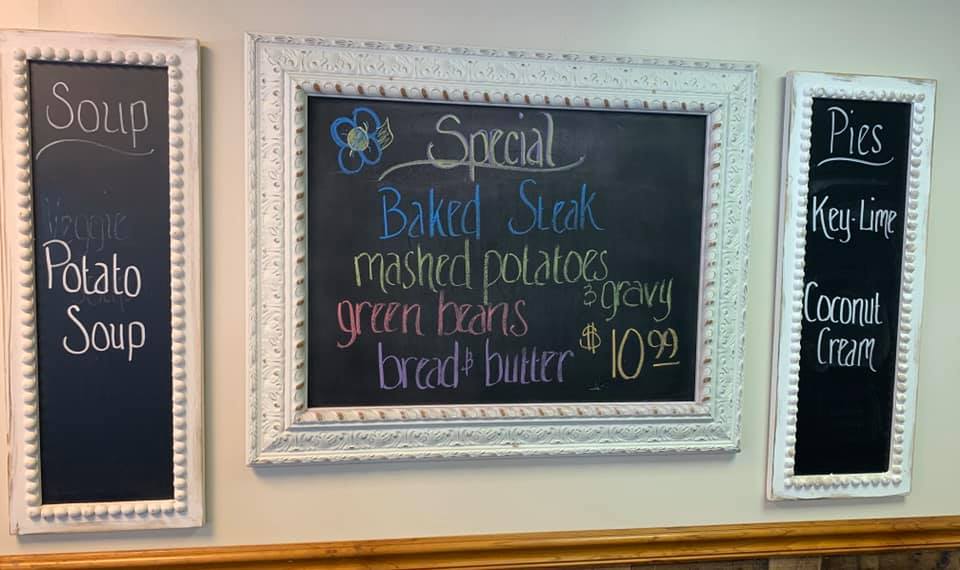 Soup
Veggie
Potato
Soup
Special
Baked Steak
mashed potatoes
& gravy
green beans
bread & butter
$10.99
Pies
Key-Lime
Coconut
Cream